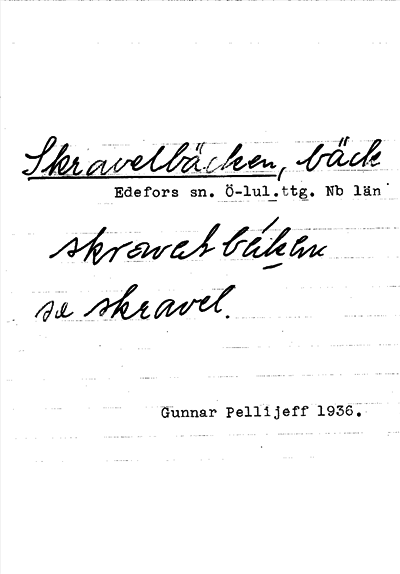 Skravelbäcken, bäck
Edefors sn. Ö-lul.ttg. Nb län
se skravel.
Gunnar Pellijeff 1936.